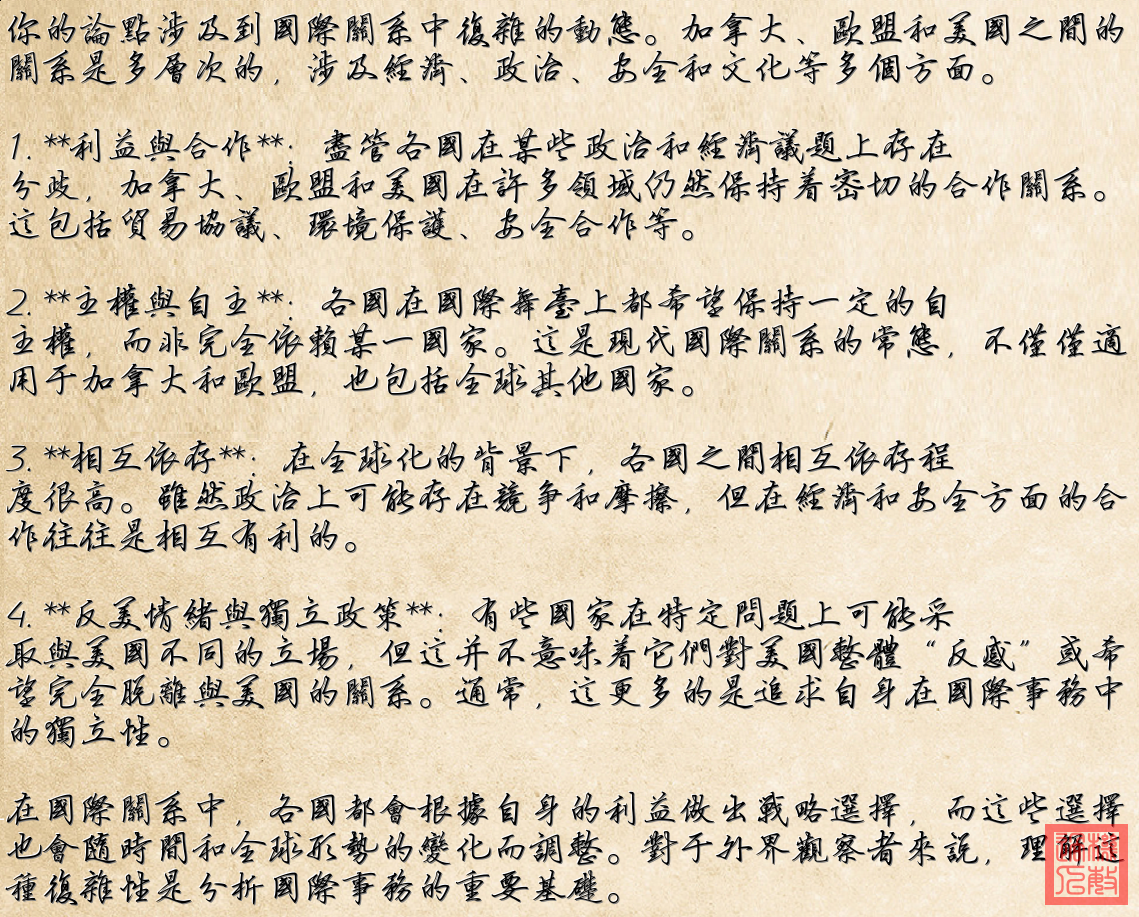 你的論點涉及到國際關系中復雜的動態。加拿大、歐盟和美國之間的
關系是多層次的，涉及經濟、政治、安全和文化等多個方面。
1. **利益與合作**：盡管各國在某些政治和經濟議題上存在
分歧，加拿大、歐盟和美國在許多領域仍然保持着密切的合作關系。
這包括貿易協議、環境保護、安全合作等。
2. **主權與自主**：各國在國際舞臺上都希望保持一定的自
主權，而非完全依賴某一國家。這是現代國際關系的常態，不僅僅適
用于加拿大和歐盟，也包括全球其他國家。
3. **相互依存**：在全球化的背景下，各國之間相互依存程
度很高。雖然政治上可能存在競爭和摩擦，但在經濟和安全方面的合
作往往是相互有利的。
4. **反美情緒與獨立政策**：有些國家在特定問題上可能采
取與美國不同的立場，但這并不意味着它們對美國整體“反感”或希
望完全脫離與美國的關系。通常，這更多的是追求自身在國際事務中
的獨立性。
在國際關系中，各國都會根據自身的利益做出戰略選擇，而這些選擇
也會隨時間和全球形勢的變化而調整。對于外界觀察者來說，理解這
種復雜性是分析國際事務的重要基礎。